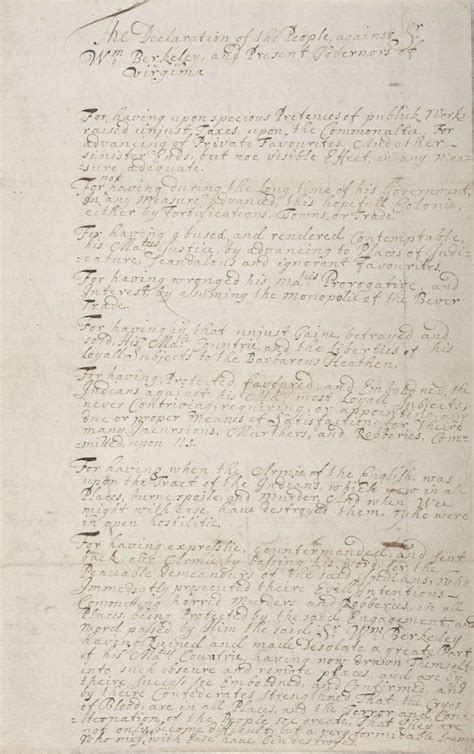 The Declaration of the People, against Sr
Wm Berkeley, and Present Governors of
Virginia
For having upon specious Pretences of publick Works
raised unjust Taxes, upon the Commonaltie, For
advancing of Private Favourites, And other
sinister Ends, but noe visible Effect, in any Mea-
sure adequate.
For not having during the Long time of his Government
in any Measure advanced, this hopefull Colonie,
either by fortifications, Towns, or Trade.
For having abused, and rendered Contemptable,
his Maties Justice, by advancing to Places of Judi-
cature, Scandalous and ignorant favourites
For having wronged his Maties Prerogative, and
Interest by assuming the monopolie of the Bever
Trade.
For having in that unjust Gaine, betrayed and
sold, His Maties Countrie, and the Liberties of his
Loyall Subjects to the Barbarous Heathen.
For having, Protected, favoured, and Emboldned, the
Indians against his Maties most Loyall Subjects,
never Contriving, requiring, or appointing any
due or proper Meanes of Satisfaction, for Theire
many Incursions, Murthers, and Robberies, Com-
mitted upon Us.
For having when the Armie of the English, was
upon the Tract of the Indians, which now in all
Places, burne, spoile, and Murder, And when Wee
might with Ease, have destroyed them, Who were
in open hostilitie.
For having expresslie, Countermanded, and sent
back, our Armie by Passing his word, for the
Peaceable demeanours of the said Indians, Who
Immediatly prosecuted theire Evill Intentions
Committing horrid Murders and Robberies, in all
Places, being Protected by the said Engagement, and
word passed by Him the said Sr Wm Berkeley
having Ruined and made Desolate a great Part
of his Maties Countrie, having now drawn Themselves
into such obscure and remote places, and are by
theire Success soe Emboldned, and Confirmed, and
by theire Confederates strengthned, That the Cryes
of Blood, are in all Places, and the Terror and Con-
sternation, of the People soe great, That They are
not only become difficult, but a very formidable Enemie
Who might with Ease have been destroyed